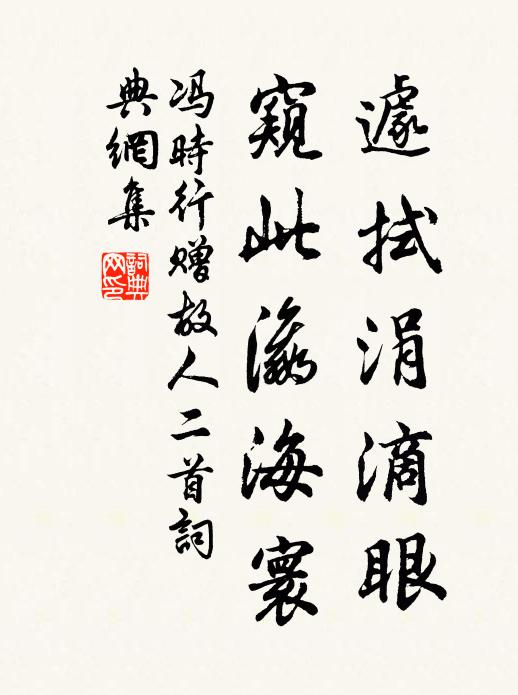 遽拭涓滴眼
窺此瀛海寰
冯時行贈故人二首詞
典網集
詞典网印